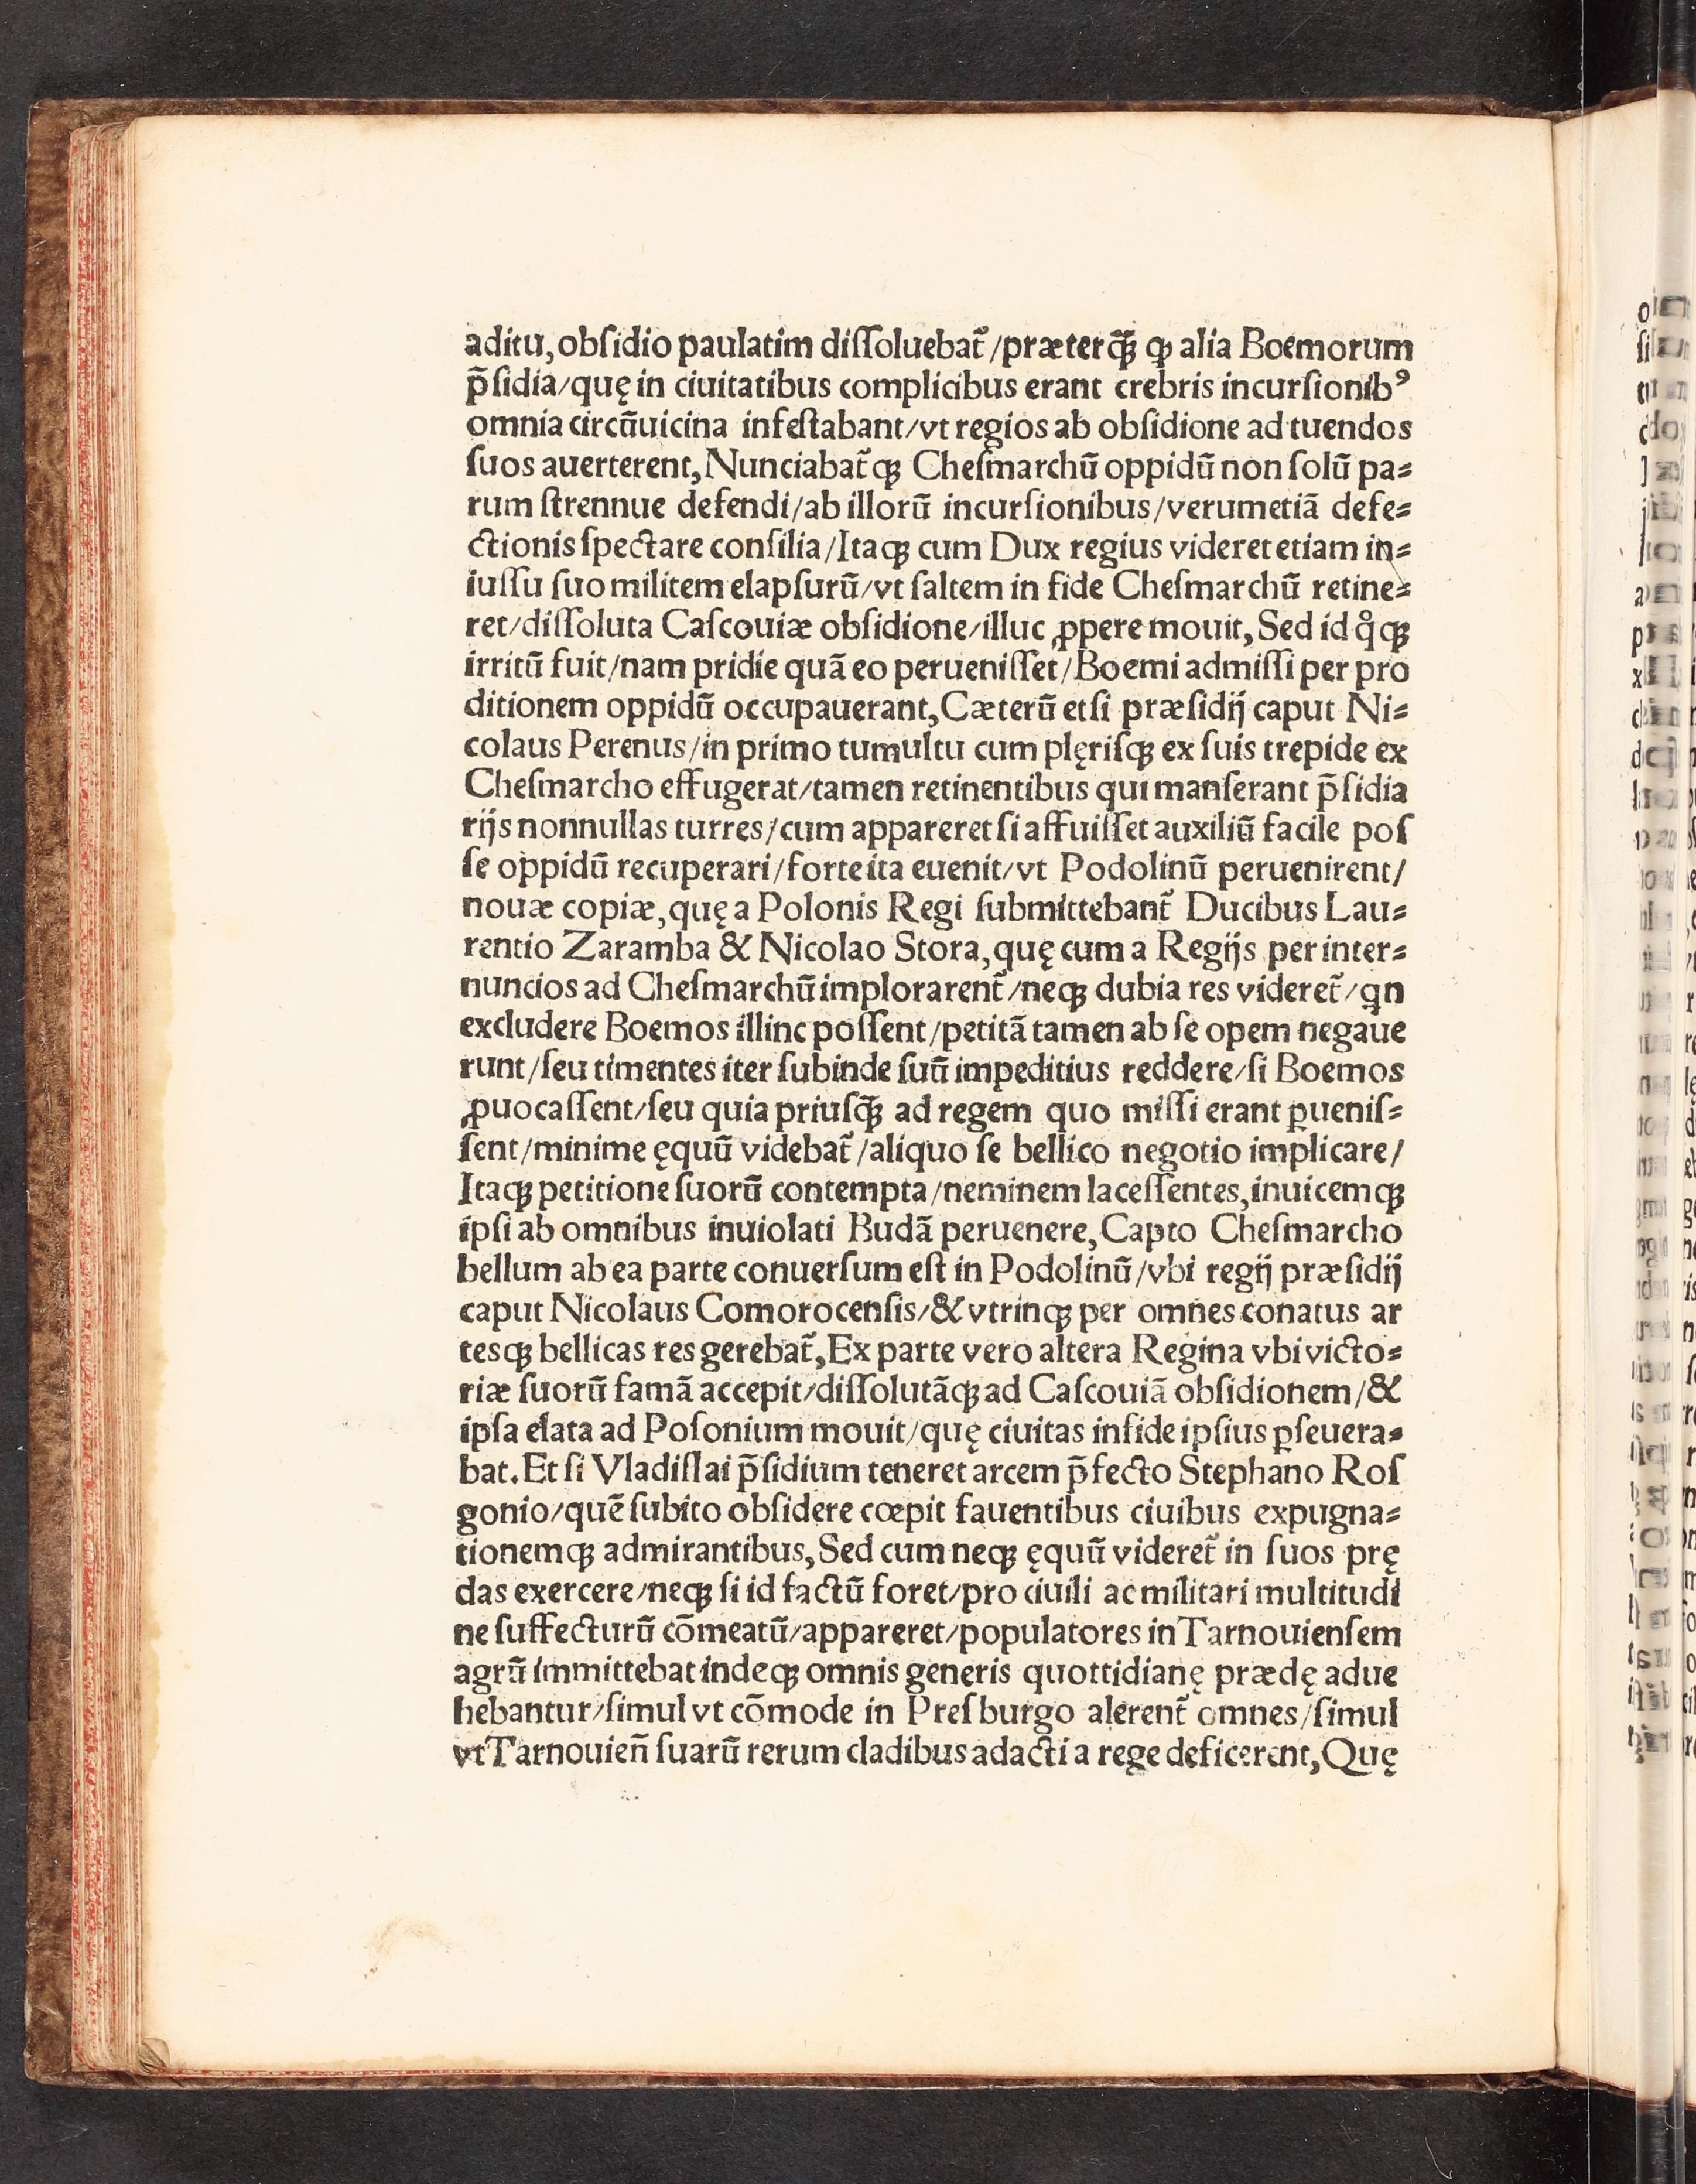 aditu, obſidio paulatim diſſoluebat᷑ /præterꝙ̃ꝫ ꝙ alia Boemorum
p̃ſidia/quę in ciuitatibus complicibus erant crebris incurſionibꝰ
omnia circũuicina infeſtabant/vt regios ab obſidione ad tuendos
ſuos auerterent, Nunciabat᷑qꝫ Cheſmarchũ oppidũ non ſolũ pa⸗
rum ſtrennue defendi/ab illorũ incurſionibus/verumetiã defe⸗
ctionis ſpectare conſilia/Itaqꝫ cum Dux regius videret etiam in⸗
iuſſu ſuo militem elapſurũ/vt ſaltem in fide Cheſmarchũ retine⸗
ret/diſſoluta Caſcouiæ obſidione/illuc ꝓpere mouit, Sed id qͦqꝫ
irritũ fuit/nam pridie quã eo perueniſſet/Boemi admiſſi per pro
ditionem oppidũ occupauerant, Cæterũ etſi præſidij caput Ni⸗
colaus Perenus/in primo tumultu cum plęriſqꝫ ex ſuis trepide ex
Cheſmarcho effugerat/tamen retinentibus qui manſerant p̃ſidia
rijs nonnullas turres/cum appareret ſi affuiſſet auxiliũ facile poſ
ſe oppidũ recuperari/forte ita euenit/vt Podolinũ peruenirent/
nouæ copiæ, quę a Polonis Regi ſubmittebant᷑ Ducibus Lau⸗
rentio Zaramba & Nicolao Stora, quę cum a Regijs per inter⸗
nuncios ad Cheſmarchũ implorarent᷑ /neqꝫ dubia res videret᷑ /qn
excludere Boemos illinc poſſent/petitã tamen ab ſe opem negaue
runt/ſeu timentes iter ſubinde ſuũ impeditius reddere/ſi Boemos
ꝓuocaſſent/ſeu quia priuſq̃ꝫ ad regem quo miſſi erant ꝑueniſ⸗
ſent/minime ęquũ videbat᷑ /aliquo ſe bellico negotio implicare/
Itaqꝫ petitione ſuorũ contempta/neminem laceſſentes, inuicemqꝫ
ipſi ab omnibus inuiolati Budã peruenere, Capto Cheſmarcho
bellum ab ea parte conuerſum eſt in Podolinũ/vbi regij præſidij
caput Nicolaus Comorocenſis/& vtrinqꝫ per omnes conatus ar
tesqꝫ bellicas res gerebat᷑, Ex parte vero altera Regina vbi victo⸗
riæ ſuorũ famã accepit/diſſolutãqꝫ ad Caſcouiã obſidionem/&
ipſa elata ad Poſonium mouit/quę ciuitas in fide ipſius ꝑſeuera⸗
bat. Et ſi Vladiſlai p̃ſidium teneret arcem p̃fecto Stephano Roſ
gonio/quẽ ſubito obſidere cœpit fauentibus ciuibus expugna⸗
tionemqꝫ admirantibus, Sed cum neqꝫ ęquũ videret᷑ in ſuos prę
das exercere/neqꝫ ſi id factũ foret/pro ciuili ac militari multitudi
ne ſuffecturũ cõmeatũ/appareret/populatores in Tarnouienſem
agrũ immittebat indeqꝫ omnis generis quottidianę prædę adue
hebantur/ſimul vt cõmode in Preſburgo alerent᷑ omnes/ſimul
vt Tarnouien̄ ſuarũ rerum cladibus adacti a rege deficerent, Quę